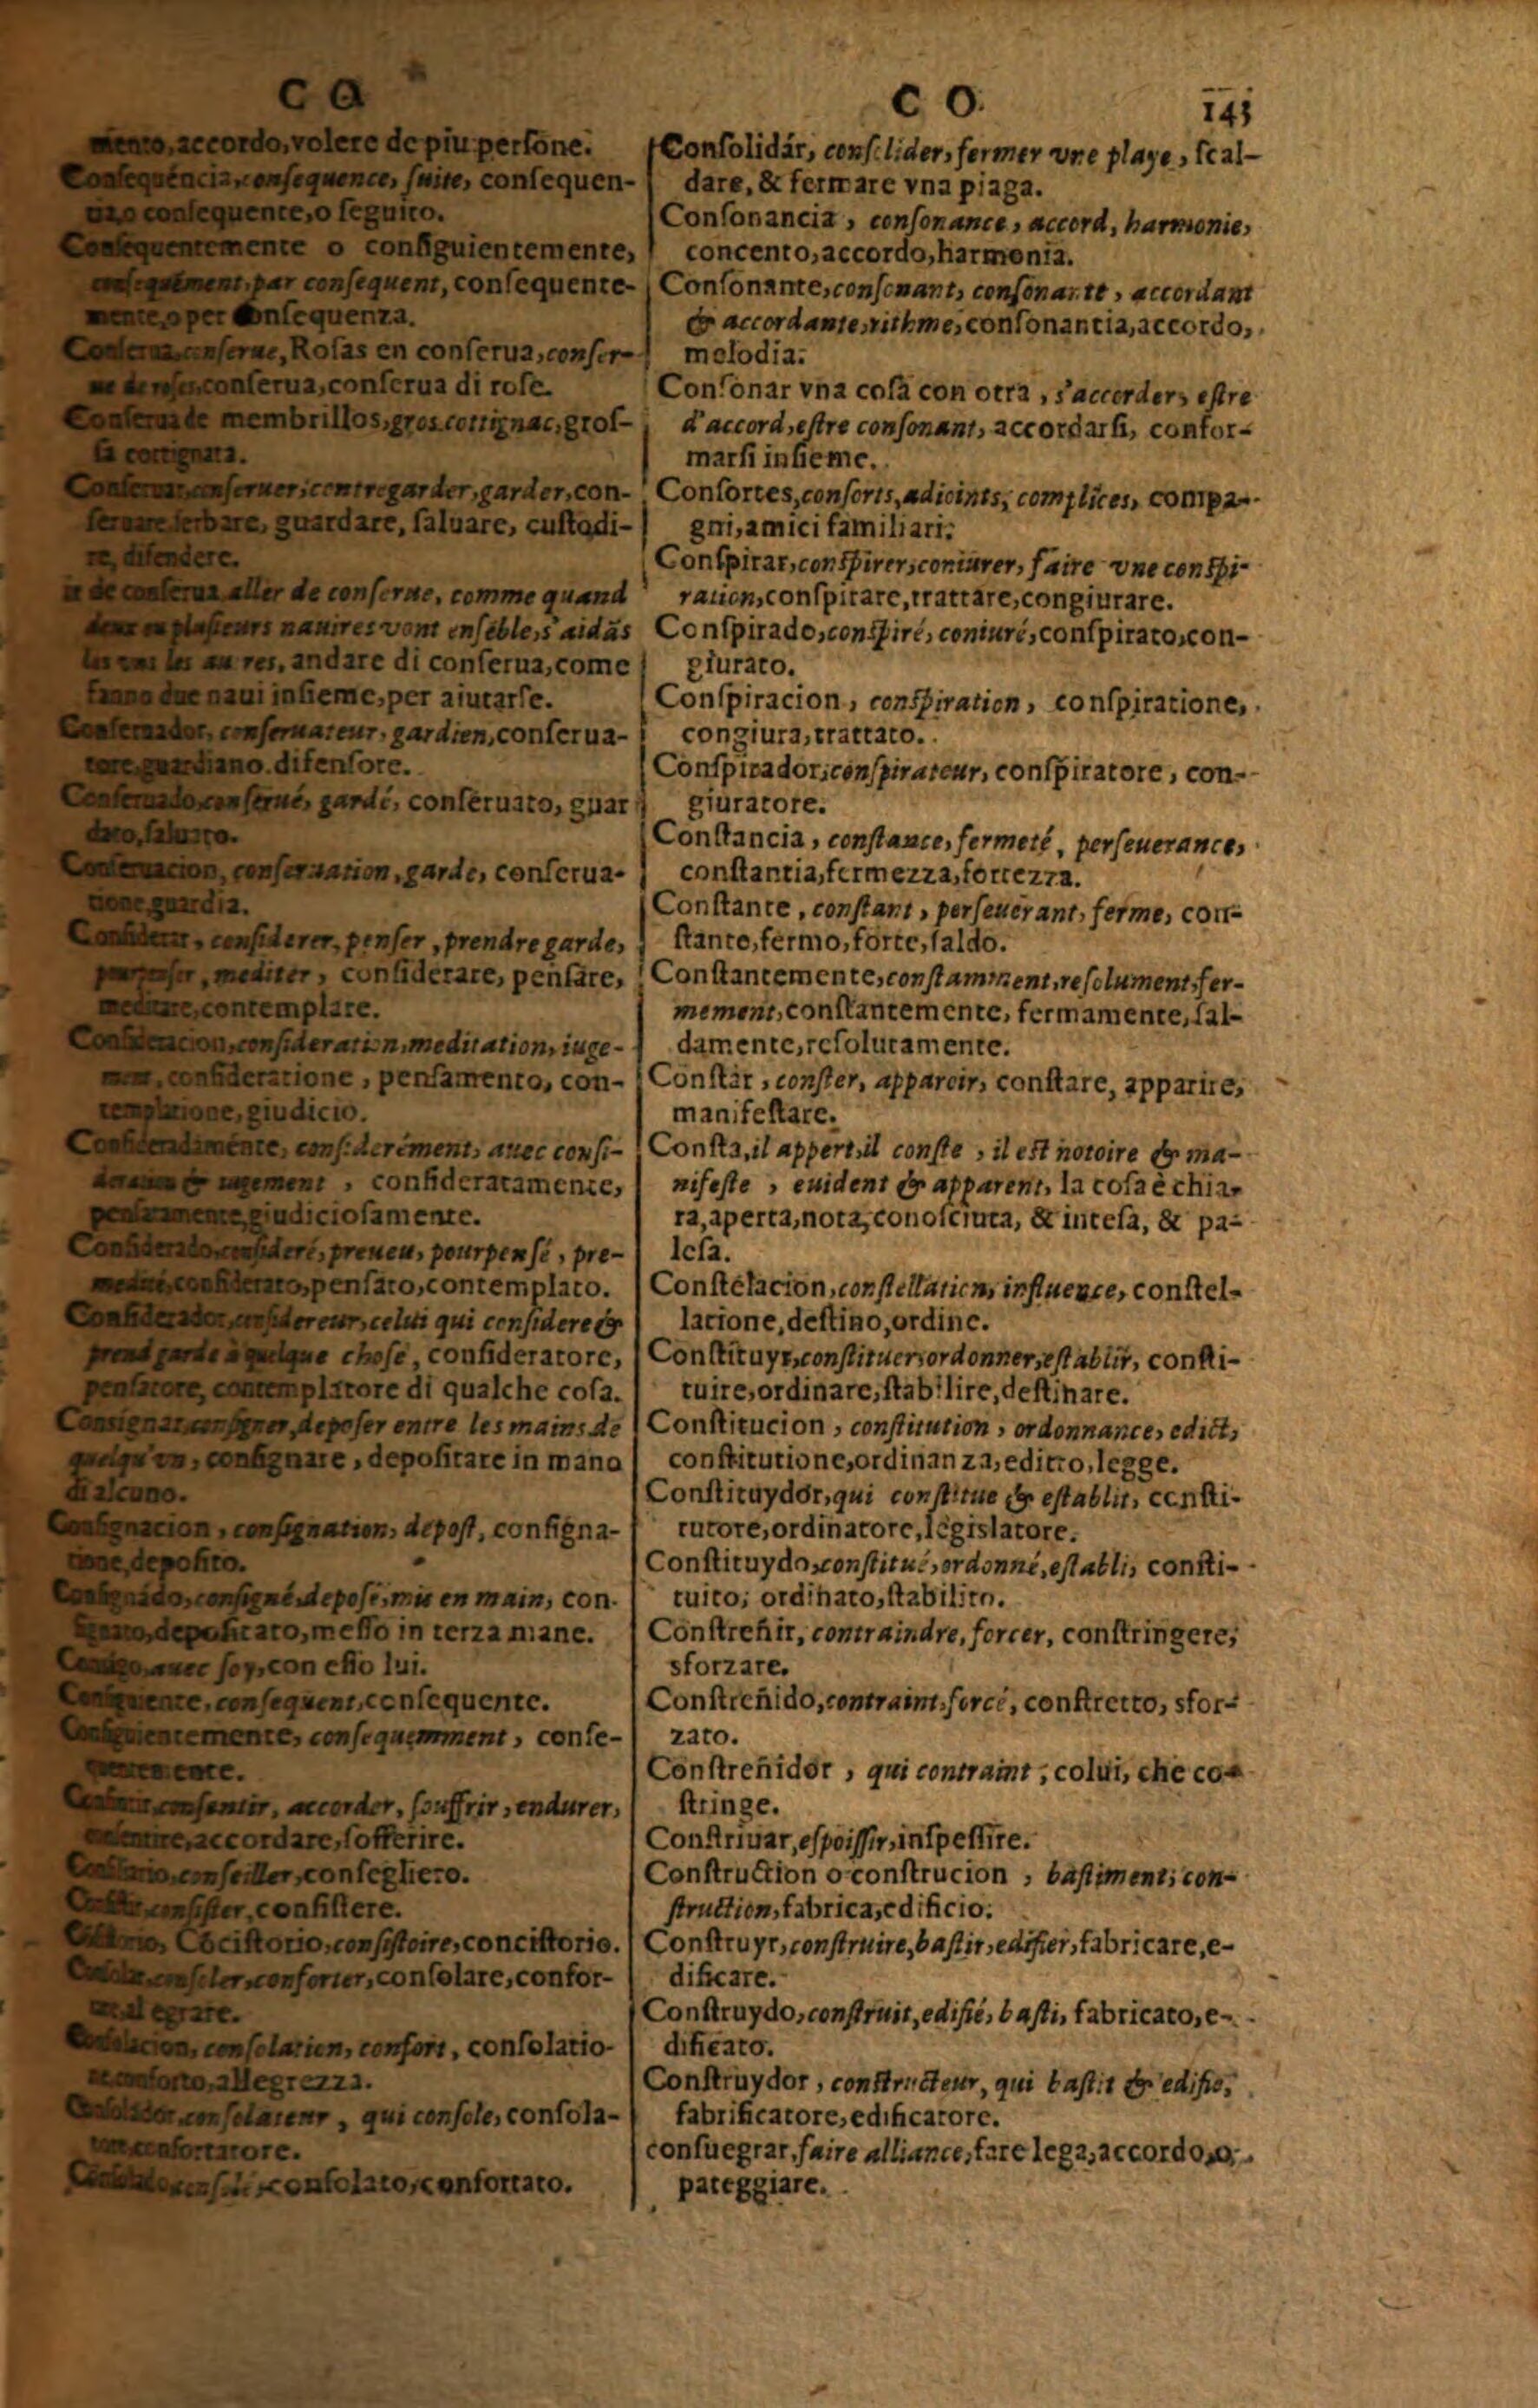 C O
miento, accordo, volere de piu persone.
Consequéncia, consequence, suite, consequen-
tia, o consequente, o seguito.
Consequentemente o consiguientemente,
par consequent, consequente-
mente, o per consequenza.
Conserua, conserue, Rosas en conserua, conser-
ue de roses, conserua, conserua di rose.
Conserua de membrillos, gros cottignac, gros-
sa cottignata.
Conseruar, conseruer, contregarder, garder, con-
seruare, serbare, guardare, saluare, custodi-
re, difendere.
ir de conserua, aller de conserue, comme quand
deux ou plusieurs nauires vont ensēble, s'aidās
les vns les au res, andare di conserua, come
fanno due naui insieme, per aiutarse.
Conseruador, conseruateur, gardien, conserua-
tore, guardiano, difensore.
Conseruado, conserué, gardé, conseruato, guar
dato, saluato.
Conseruacion, conseruation, garde, conserua-
tione, guardia.
Considerar, considerer, penser, prendre garde,
pourpenser, mediter, considerare, pensare,
meditare, contemplare.
Consideracion, consideration, meditation, iuge-
ment, consideratione, pensamento, con-
templatione, giudicio.
Consideradaménte, considerément, auec consi-
deration & iugement, consideratamente,
pensatamente, giudiciosamente.
Considerado, consideré, preueu, pourpensé, pre-
medité, considerato, pensato, contemplato.
Considerador, considereur, celui qui considere &
prend garde à quelque chose, consideratore,
pensatore, contemplatore di qualche cosa.
Consignar, consigner, deposer entre les mains de
quelqu'vn, consignare, depositare in mano
di alcuno.
Consignacion, consignation, depost, consigna-
tione, deposito.
Consignádo, consigné, deposé, mis en main, con.
signato, depositato, messo in terza mane.
Consigo, auec soy, con esso lui.
Consiguiente, consequent, consequente.
Consiguientemente, consequemment, conse-
quentemente.
Consentir, accorder, souffrir, endurer,
consentire, accordare, sofferire.
Consiliario, conseiller, consegliero.
Consistir, consister, consistere.
Cōcistorio, consistoire, concistorio.
Consolar, consoler, conforter, consolare, confor-
tar, al egrare.
Consolacion, consolation, confort, consolatio-
ne, conforto, allegrezza.
Consolador, consolateur, qui console, consola-
tore, confortatore.
Consolado, consolé, consolato, confortato.
C O.
145
Consolidár, consolider, fermer vne playe, scal-
dare, & fermare vna piaga.
Consonancia, consonance, accord, harmonie,
concento, accordo, harmonia.
Consonante, consonant, consonante, accordant
& accordante, rithme, consonantia, accordo,
melodia.
Consonar vna cosa con otra, s'accorder, estre
d'accord, estre consonant, accordarsi, confor-
marsi insieme.
Consortes, consorts, adioints, complices, compa-
gni, amici familiari.
Conspirar, conspirer, coniurer, faire vne conspi-
ration, conspirare, trattare, congiurare.
Conspirado, conspiré, coniuré, conspirato, con-
giurato.
Conspiracion, conspiration, conspiratione,
congiura, trattato.
Conspirador, conspirateur, conspiratore, con-
giuratore.
Constancia, constance, fermeté, perseuerance,
constantia, fermezza, fortezza.
Constante, constant, perseuerant, ferme, con-
stante, fermo, forte, saldo.
Constantemente, constamment, resolument, fer-
mement, constantemente, fermamente, sal-
damente, resolutamente.
Constár, conster, apparoir, constare, apparire,
manifestare.
Consta, il appert, il conste, il est notoire & ma-
nifeste, euident & apparent, la cosa è chia-
ra, aperta, nota, conosciuta, & intesa, & pa-
lesa.
Constélacion, constellation, influence, constel-
latione, destino, ordine.
Constituyr, constituer, ordonner, establir, consti-
tuire, ordinare, stabilire, destinare.
Constitucion, constitution, ordonnance, edict,
constitutione, ordinanza, editto, legge.
Constituydór, qui constitue & establit, consti-
tutore, ordinatore, legislatore.
Constituydo, constitué, ordonné, establi, consti-
tuito, ordinato, stabilito.
Constreñir, contraindre, forcer, constringere,
sforzare.
Constreñido, contraint, forcé, constretto, sfor-
zato.
Constreñidór, qui contraint, colui, che co-
stringe.
Constriuar, espoissir, inspessire.
Construction o construcion, bastiment, con-
struction, fabrica, edificio.
Construyr, construire, bastir, edifier, fabricare, e-
dificare.
Construydo, construit, edifié, basti, fabricato, e-
dificato.
Construydor, constructeur, qui bastit & edifie,
fabrificatore, edificatore.
consuegrar, faire alliance, fare lega, accordo, o
pateggiare.